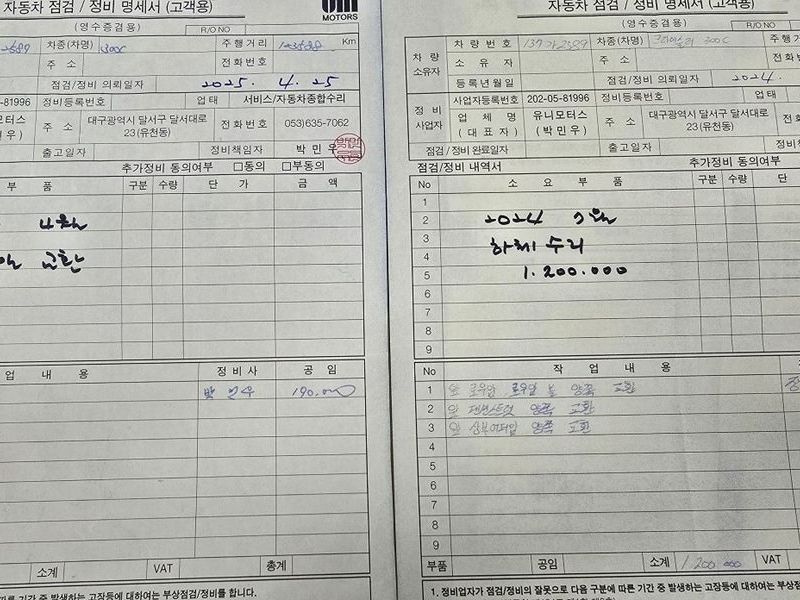 자동차 점검 / 정비 명세서 (고객용)
MOTORS
(영수증검용)
R/O NO
2689 차종(차명) 300C 주행거리 Km
주 소 전화번호
점검/정비 의뢰일자 2025. 4. 25
-81996 정비등록번호 업태 서비스/자동차종합수리
모터스 주 소 대구광역시 달서구 달서대로 23 (유천동) 전화번호 053)635-7062
민우)
출고일자 정비책임자 박 민 우
추가정비 동의여부 □동의 □부동의
부 품 구분 수량 단 가 금 액
4월
교환
업 내 용 정 비 사 공 임
박민우 190,000
소계 VAT 총계
따른 기간 중 발생하는 고장등에 대하여는 부상점검/정비를 합니다.
자동차 점검 / 정비 명세서 (고객용)
(영수증검용)
R/O NO
차 량 소유자 차 량 번 호 차종(차명) 크라이슬러 300C 주행거
소 유 자 주 소 전화번
등록년월일 점검/정비 의뢰일자 2024.
정 비 사업자 사업자등록번호 202-05-81996 정비등록번호 업태
업 체 명 (대 표 자) 유니모터스 (박민우) 주 소 대구광역시 달서구 달서대로 23 (유천동) 전화번
점검 / 정비 완료일자 출고일자 정비책
점검/정비 내역서 추가정비 동의여부
No 소 요 부 품 구분 수량 단
1
2 2024 7월
3 하체 수리
4
5 1.200.000
6
7
8
9
No 작 업 내 용
1 앞 로우암 로우암 볼 양쪽 교환
2 앞 텐션스트럿 양쪽 교환
3 앞 상부어퍼암 양쪽 교환
4
5
6
7
8
9
부품 공임 소계 1200.000 VAT
1. 정비업자가 점검/정비의 잘못으로 다음 구분에 따른 기간 중 발생하는 고장등에 대하여는